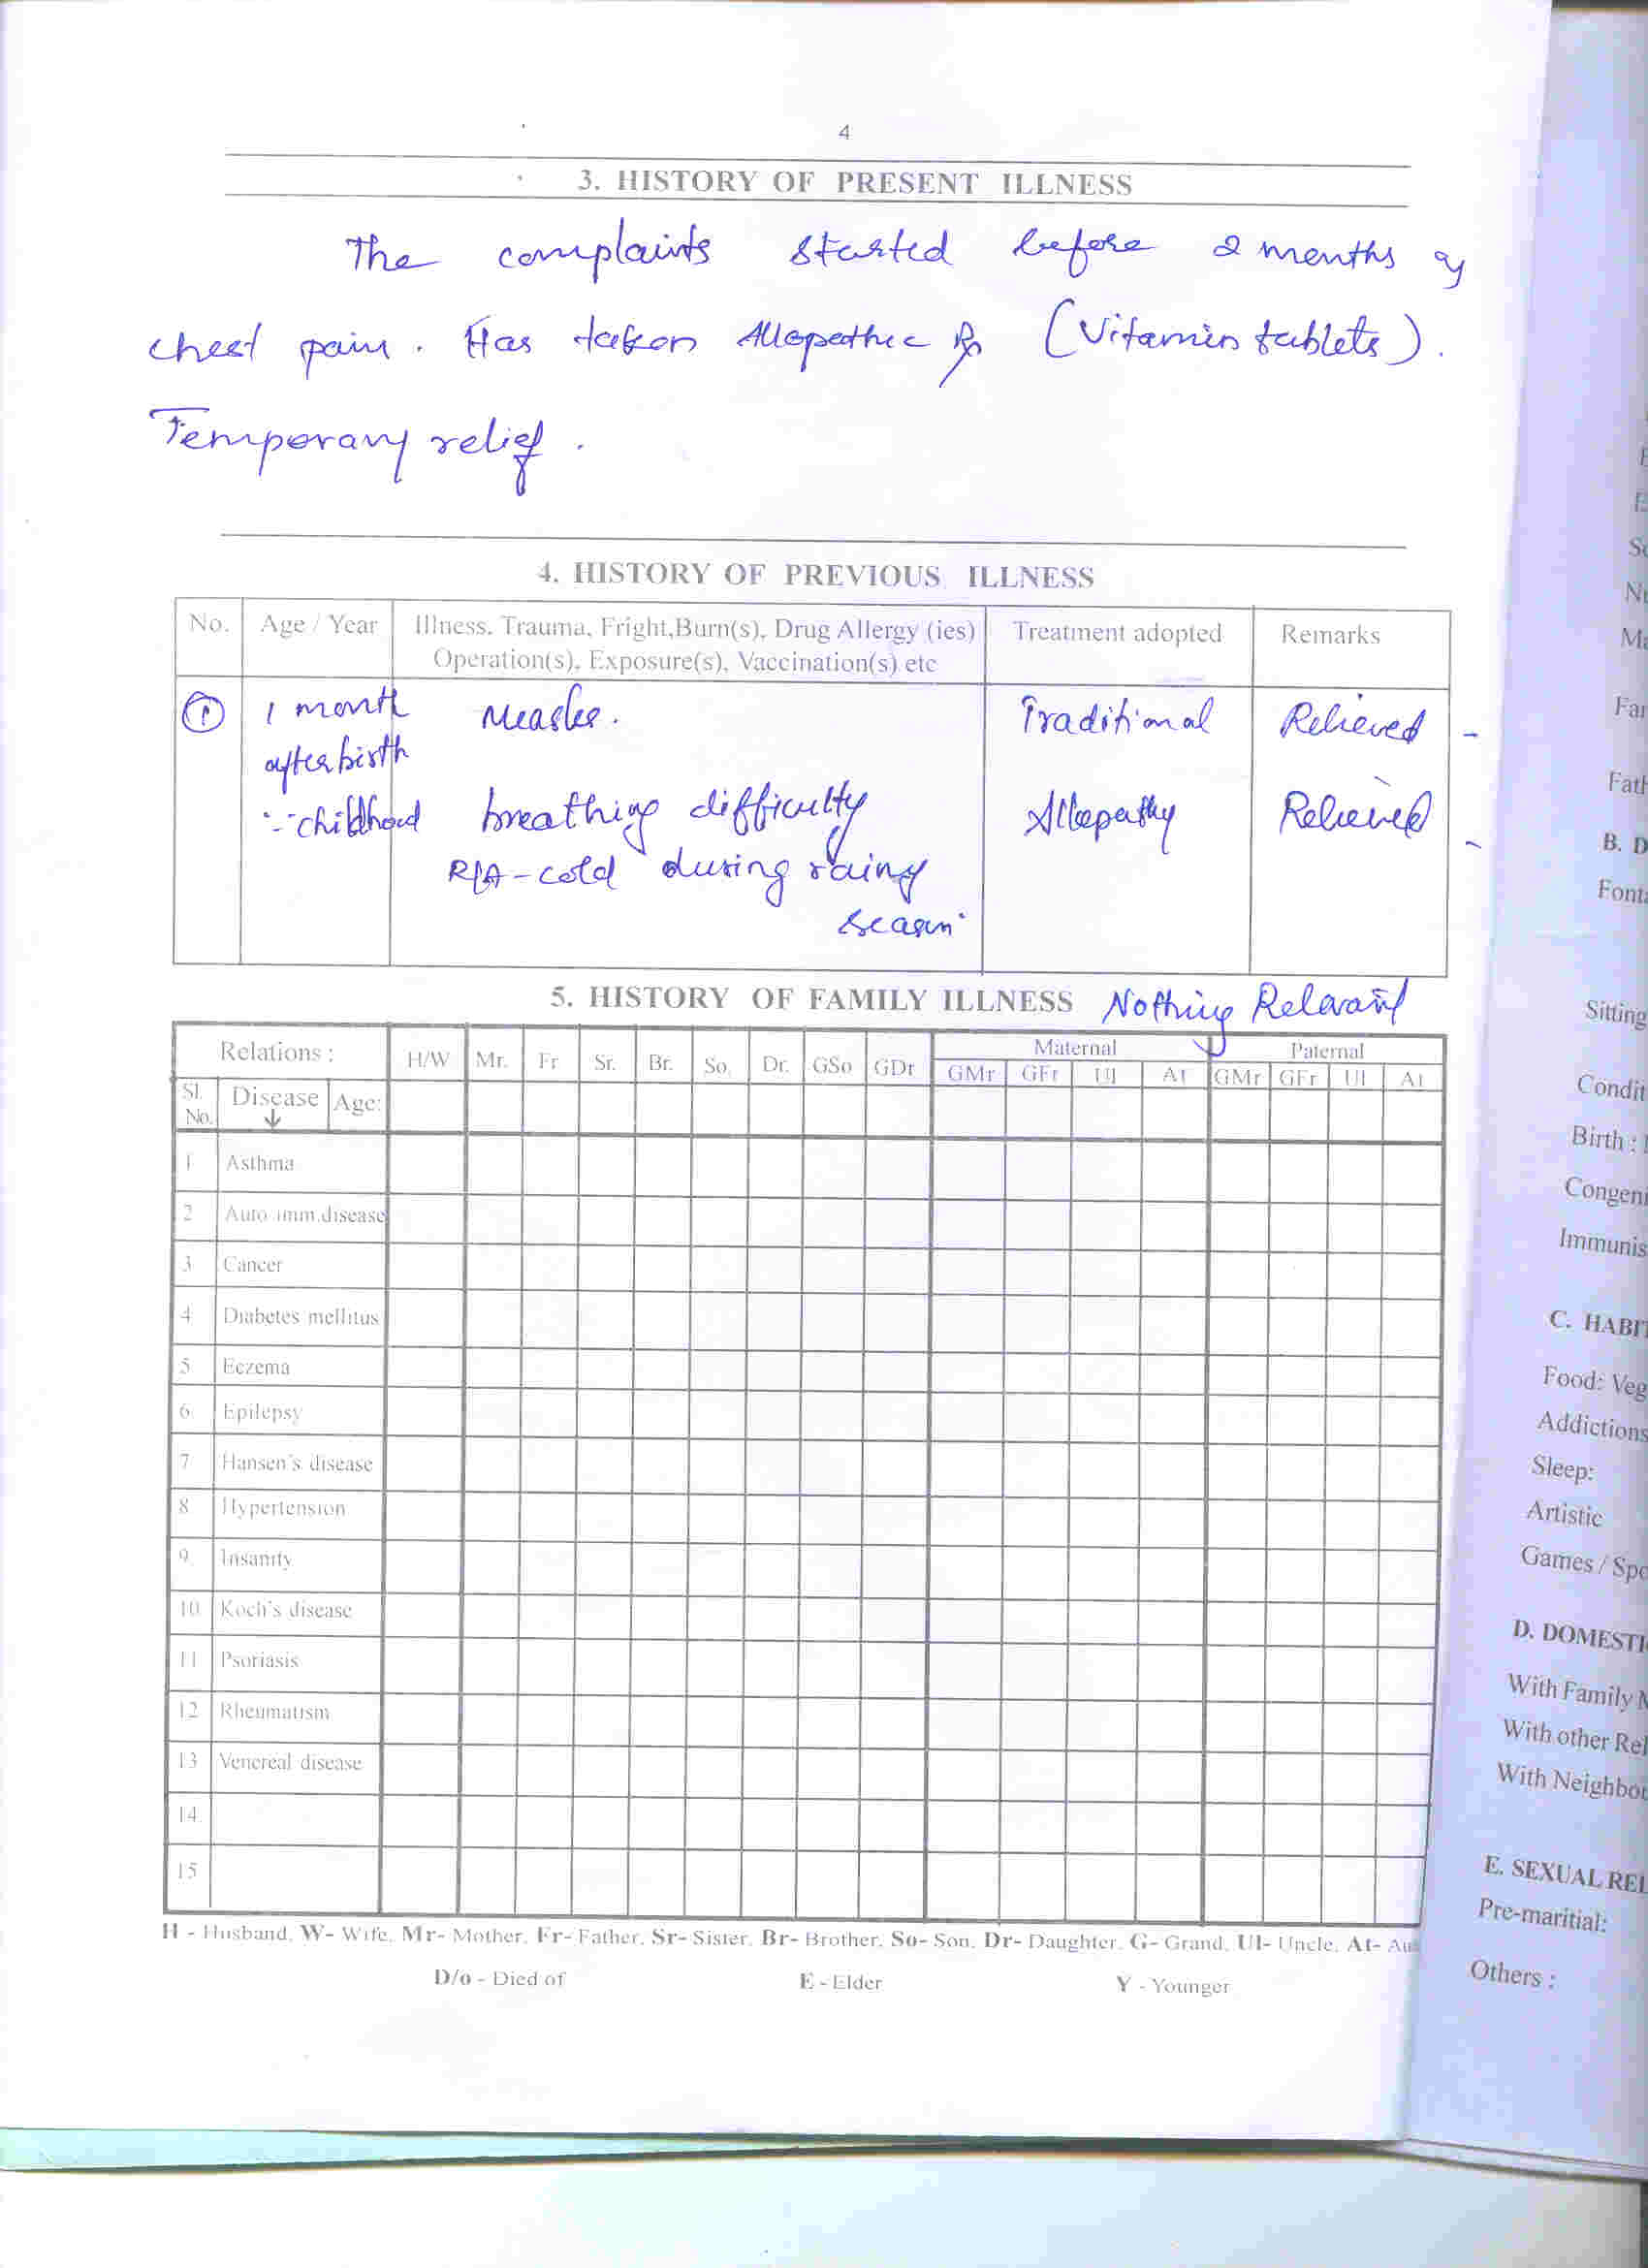 4
3. HISTORY OF PRESENT ILLNESS
The complaints started before 2 months of
chest pain. Has taken Allopathic Rx (Vitamin tablets).
Temporary relief.
4. HISTORY OF PREVIOUS ILLNESS
No. Age / Year Illness, Trauma, Fright,Burn(s), Drug Allergy (ies) Treatment adopted Remarks
Operation(s), Exposure(s), Vaccination(s) etc
① 1 month Measles. Traditional Relieved -
after birth
childhood breathing difficulty Allopathy Relieved -
cold during rainy
season
5. HISTORY OF FAMILY ILLNESS Nothing Relevant
Relations : H/W Mr. Fr Sr. Br. So. Dr. GSo GDr Maternal Paternal
GMr GFr Ul At GMr GFr Ul At
Sl. No. Disease ↓ Age:
1 Asthma
2 Auto imm.disease
3 Cancer
4 Diabetes mellitus
5 Eczema
6 Epilepsy
7 Hansen's disease
8 Hypertension
9 Insanity
10 Koch's disease
11 Psoriasis
12 Rheumatism
13 Venereal disease
14
15
H - Husband, W- Wife, Mr- Mother, Fr- Father, Sr- Sister, Br- Brother, So- Son, Dr- Daughter, G- Grand, Ul- Uncle, At- Au
D/o - Died of E - Elder Y - Younger
Far
Fath
B. D
Font
Sitting
Condit
Birth :
Congeni
Immunis
C. HABIT
Food: Veg
Addictions
Sleep:
Artistic
Games / Spo
D. DOMESTI
With Family
With other Rel
With Neighbou
E. SEXUAL REL
Pre-maritial:
Others :